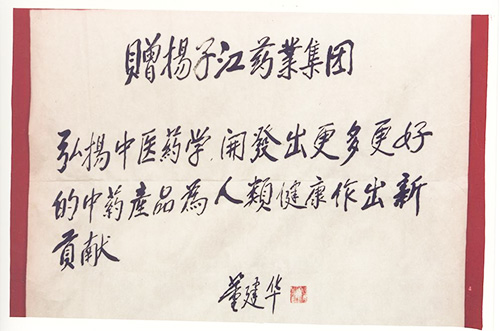 贈揚子江药業集团
弘揚中医藥学,開發出更多更好
的中药產品為人類健康作出新
貢献
董建华